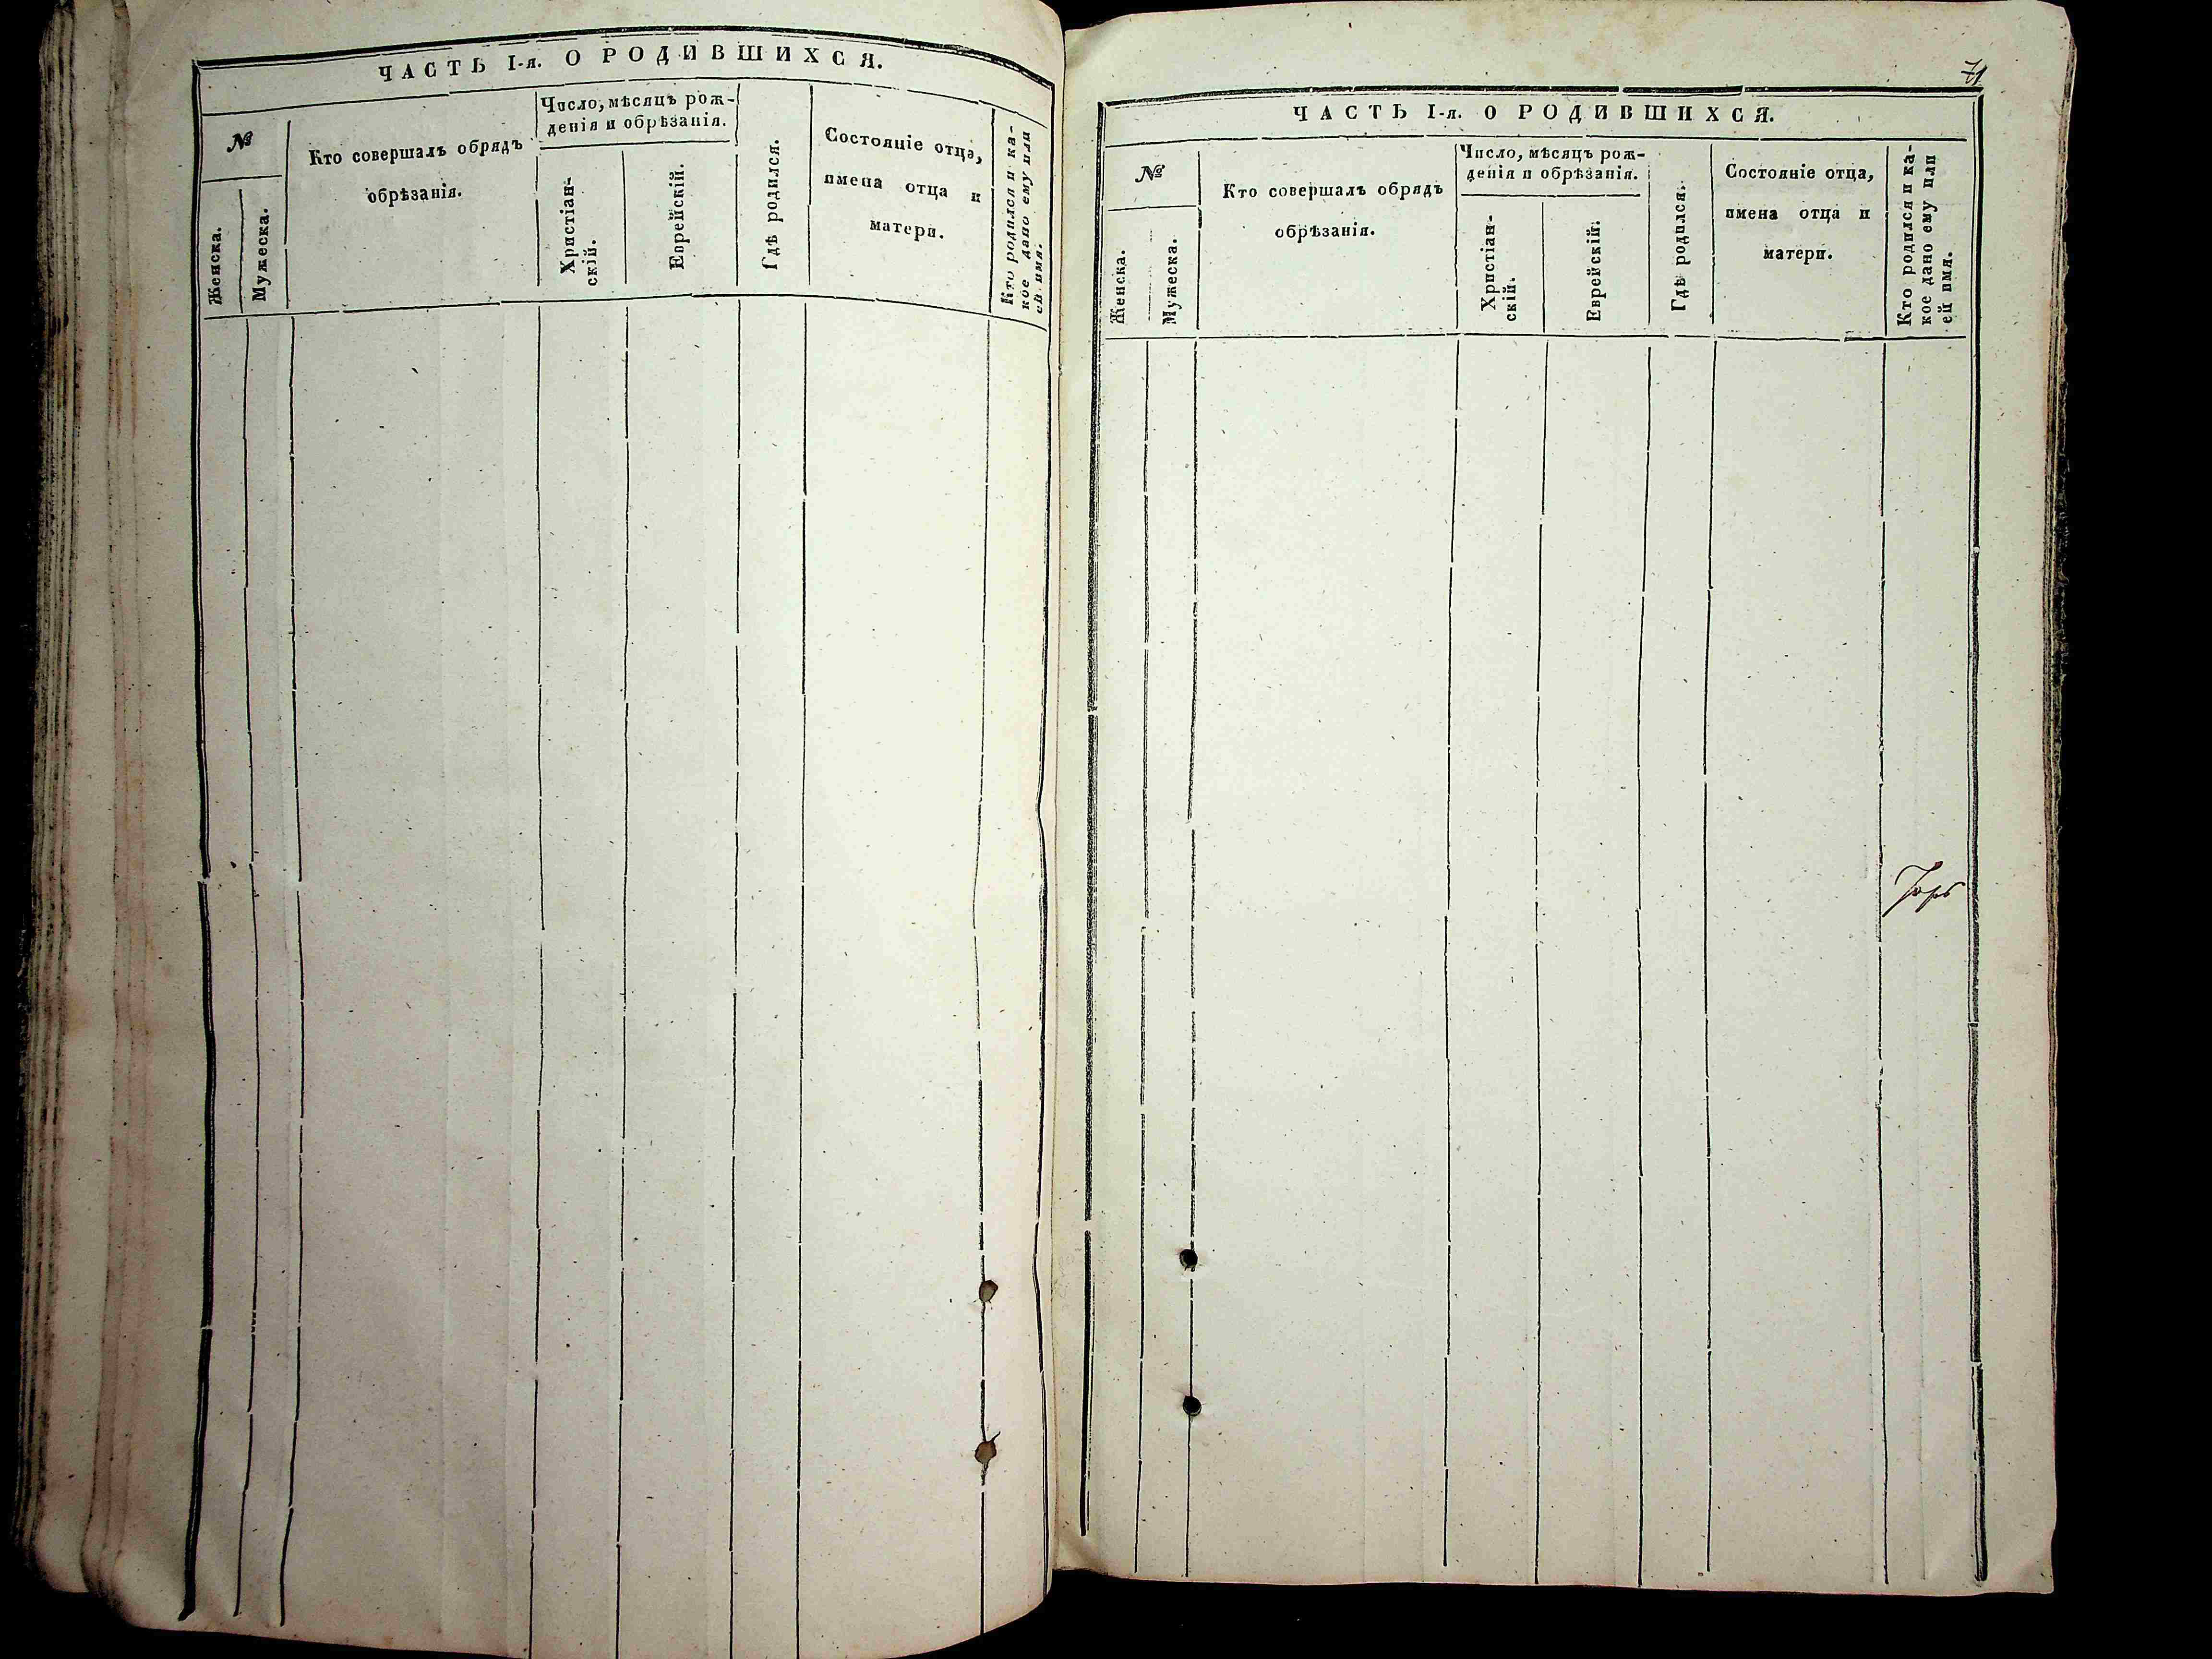 ЧАСТЬ I-я. О РОДИВШИХСЯ.
№
Женска.
Мужеска.
Кто совершалъ обрядъ
обрѣзанія.
Число, мѣсяцъ рож-
денія и обрѣзанія.
Христіан-
скій.
Еврейскій.
Гдѣ родился.
Состояніе отца,
имена отца и
матери.
Кто родился и ка-
кое дано ему или
ей имя.
71
ЧАСТЬ I-я. О РОДИВШИХСЯ.
№
Женска.
Мужеска.
Кто совершалъ обрядъ
обрѣзанія.
Число, мѣсяцъ рож-
денія и обрѣзанія.
Христіан-
скій.
Еврейскій.
Гдѣ родился.
Состояніе отца,
имена отца и
матери.
Кто родился и ка-
кое дано ему или
ей имя.